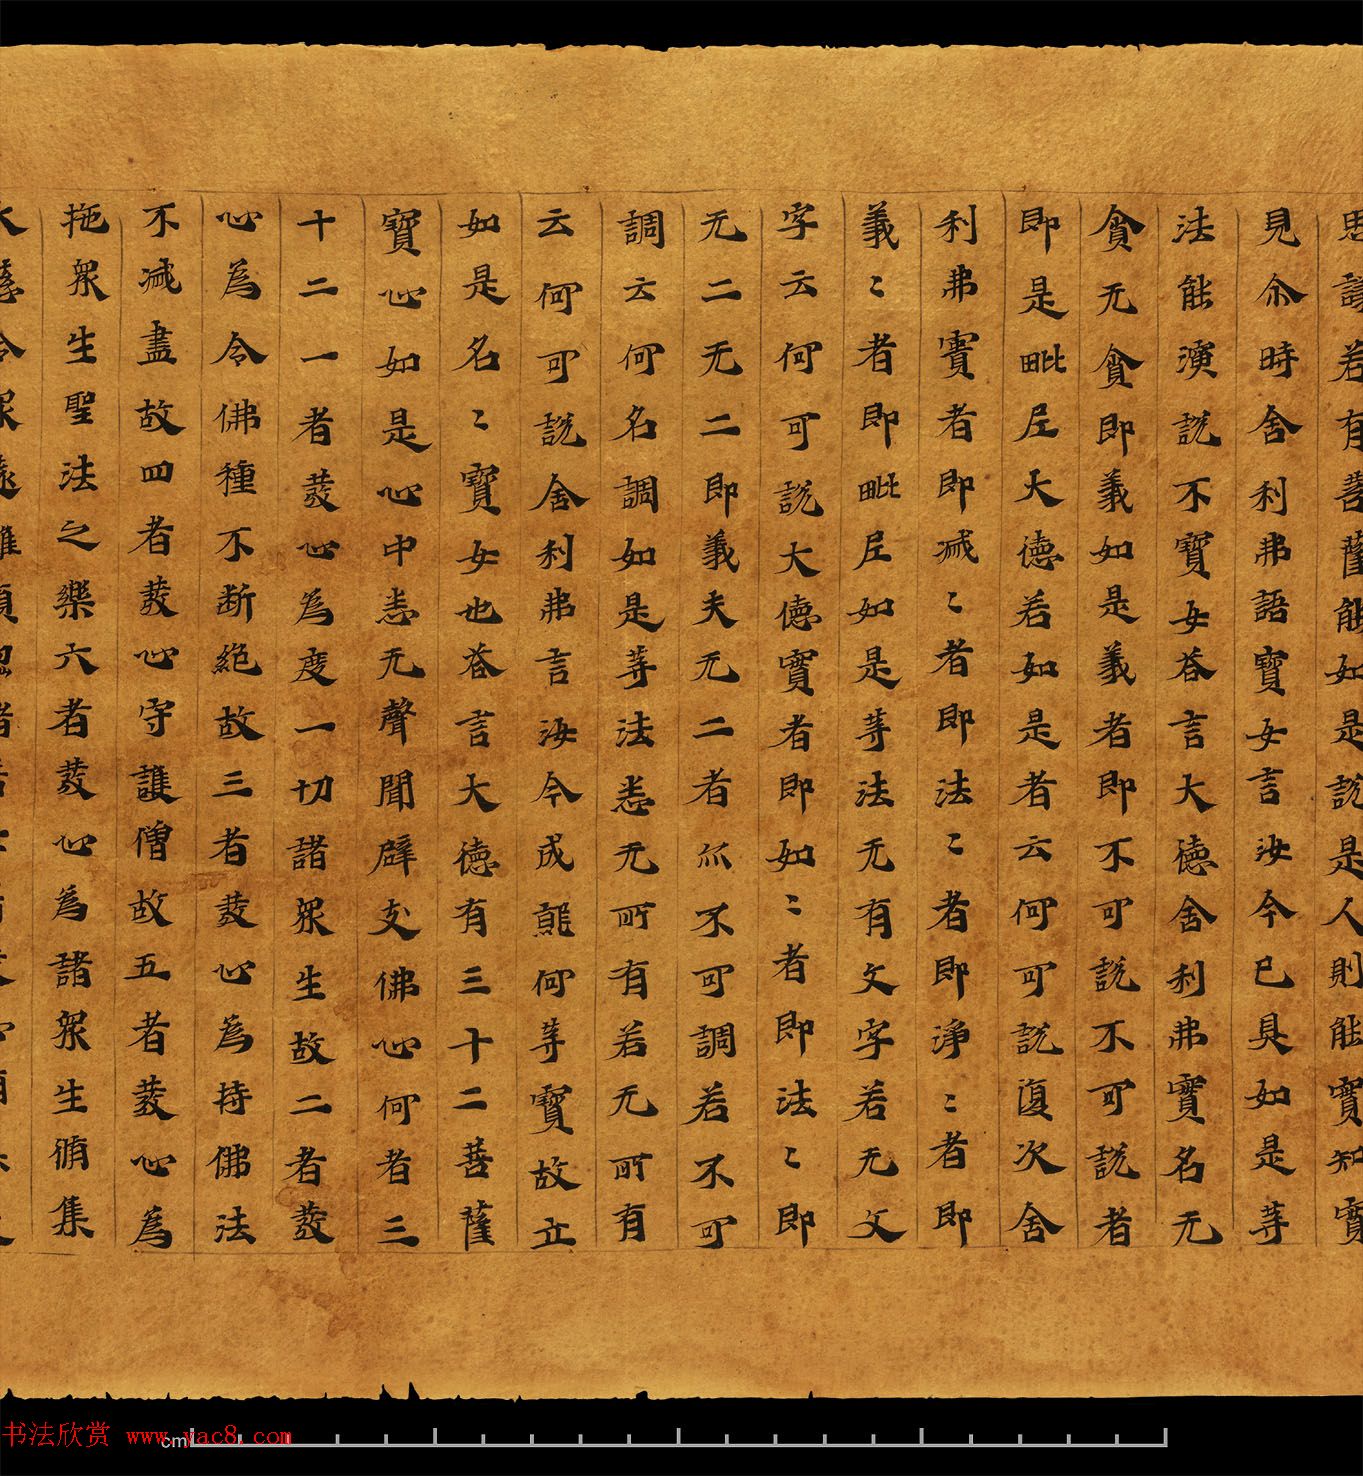 思議若有菩薩能如是說是人則能實知實
見尒時舍利弗語寶女言汝今已具如是等
法能演說不寶女荅言大德舍利弗實名无
貪无貪即義如是義者即不可說不可說者
即是毗尼大德若如是者云何可說復次舍
利弗實者即滅〻者即法〻者即淨〻者即
義〻者即毗尼如是等法无有文字若无文
字云何可說大德實者即如〻者即法〻即
无二无二即義夫无二者尒不可調若不可
調云何名調如是等法悉无所有若无所有
云何可說舍利弗言汝今成熊何等寶故立
如是名〻寶女也荅言大德有三十二菩薩
寶心如是心中悉无聲聞辟支佛心何者三
十二一者發心為度一切諸眾生故二者發
心為令佛種不断絕故三者發心為持佛法
不滅盡故四者發心守護僧故五者發心為
拖眾生聖法之樂六者發心為諸眾生脩集
書法欣赏 www.yac8.com
cm